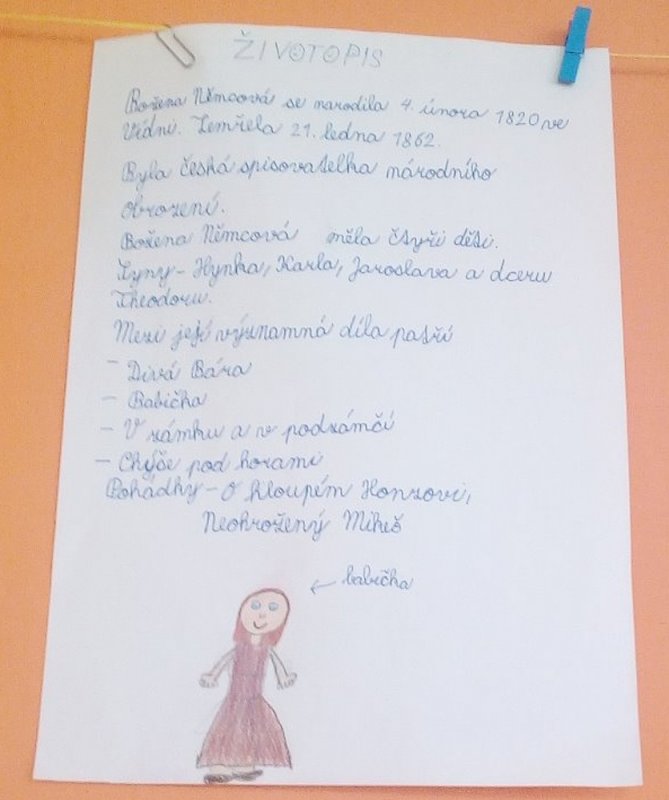 ŽIVOTOPIS
Božena Němcová se narodila 4. února 1820 ve
Vídni. Zemřela 21. ledna 1862.
Byla česká spisovatelka národního
obrození.
Božena Němcová měla čtyři děti.
Syny - Hynka, Karla, Jaroslava a dceru
Theodoru.
Mezi její významná díla patří
- Divá Bára
- Babička
- V zámku a v podzámčí
- Chýše pod horami
Pohádky - O hloupém Honzovi,
Neohrožený Mikeš
← babička